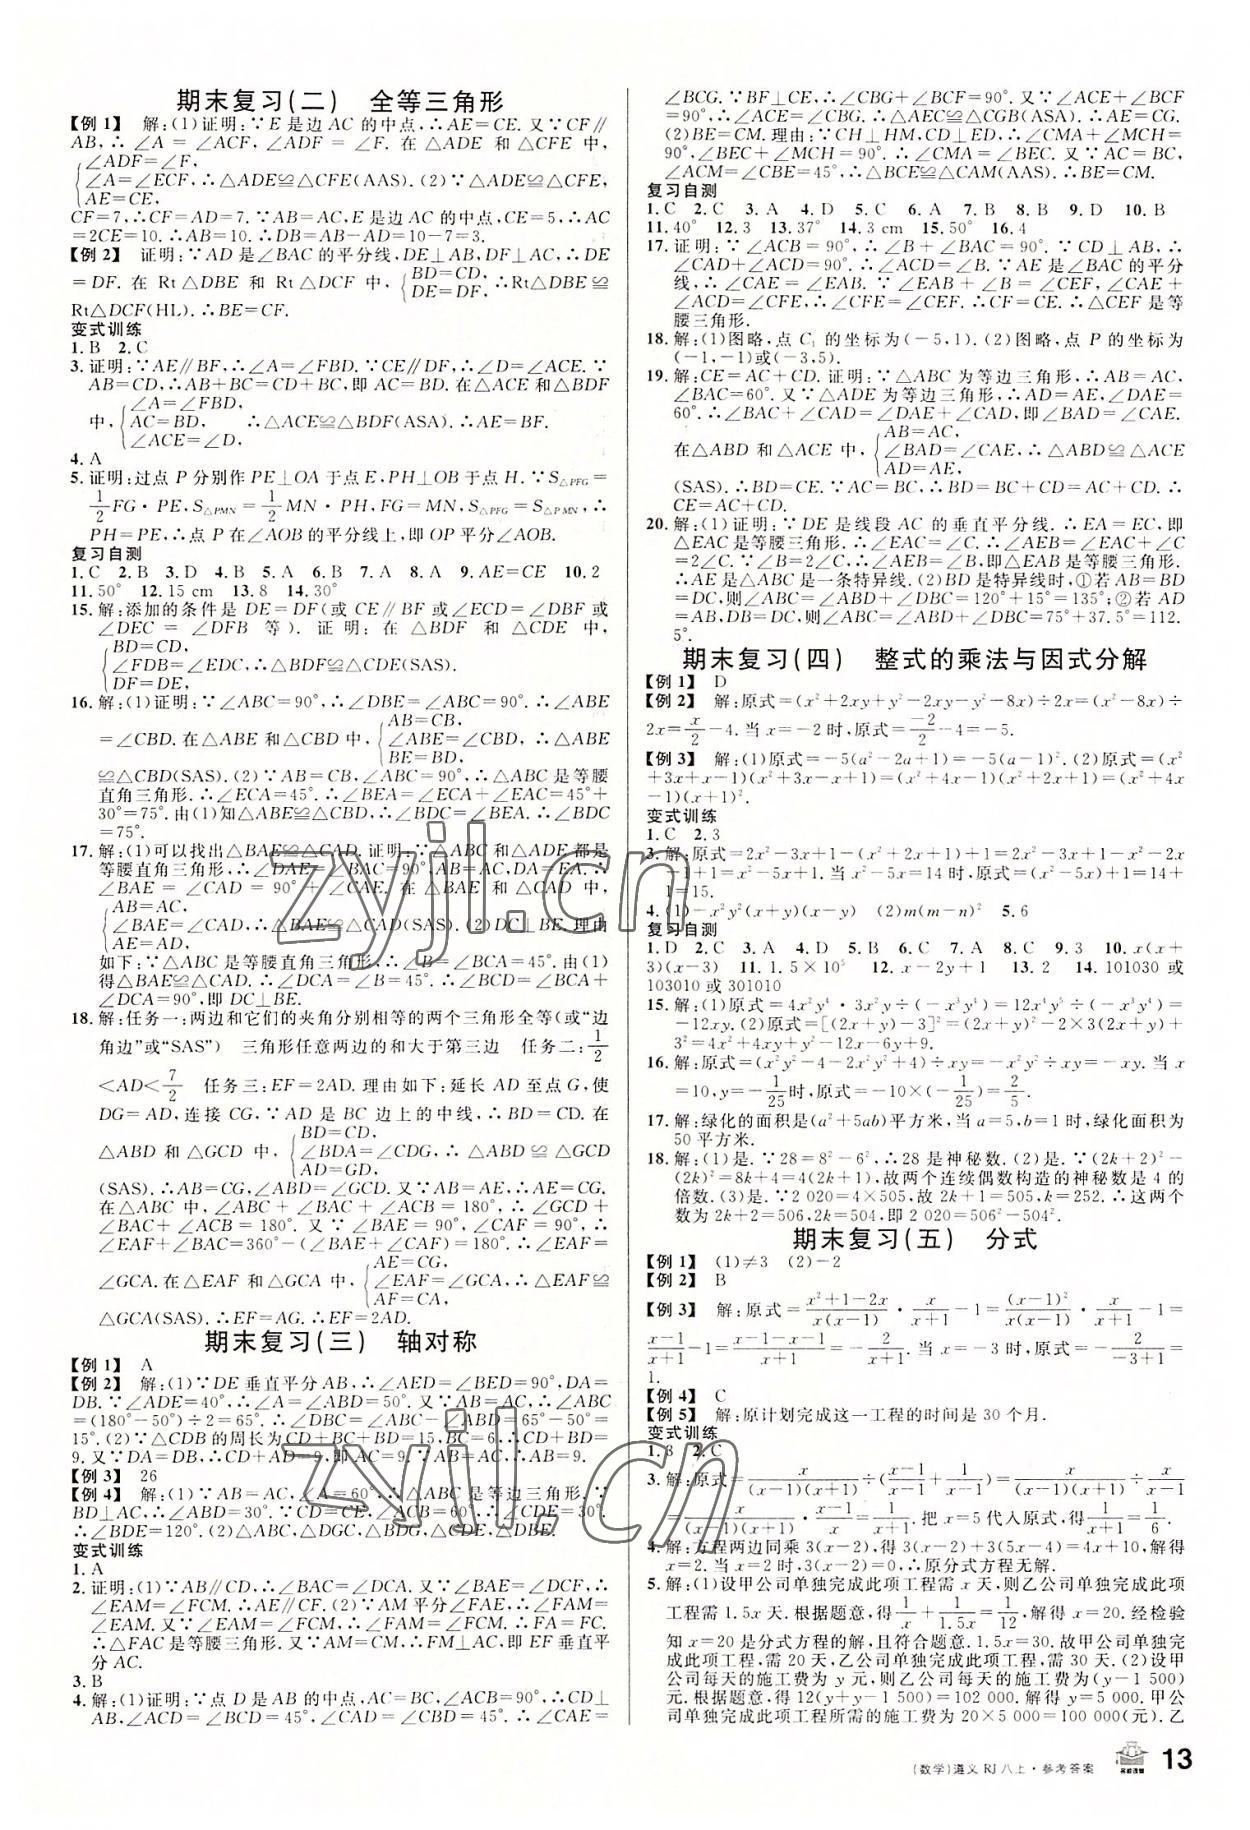 期末复习(二) 全等三角形
【例1】 解:(1)证明:∵E是边AC的中点,∴AE=CE.又∵CF∥
AB,∴∠A=∠ACF,∠ADF=∠F.在△ADE和△CFE中,
∠ADF=∠F,
∠A=∠ECF,∴△ADE≌△CFE(AAS).(2)∵△ADE≌△CFE,
AE=CE,
CF=7,∴CF=AD=7.∵AB=AC,E是边AC的中点,CE=5,∴AC
=2CE=10.∴AB=10.∴DB=AB-AD=10-7=3.
【例2】 证明:∵AD是∠BAC的平分线,DE⊥AB,DF⊥AC,∴DE
=DF.在Rt△DBE和Rt△DCF中,{BD=CD, DE=DF,∴Rt△DBE≌
Rt△DCF(HL).∴BE=CF.
变式训练
1.B 2.C
3.证明:∵AE∥BF,∴∠A=∠FBD.∵CE∥DF,∴∠D=∠ACE.∵
AB=CD,∴AB+BC=CD+BC,即AC=BD.在△ACE和△BDF
∠A=∠FBD,
中,AC=BD, ∴△ACE≌△BDF(ASA).∴AE=BF.
∠ACE=∠D,
4.A
5.证明:过点P分别作PE⊥OA于点E,PH⊥OB于点H.∵S△PFG=
1/2FG·PE,S△PMN=1/2MN·PH,FG=MN,S△PFG=S△PMN,∴
PH=PE,∴点P在∠AOB的平分线上,即OP平分∠AOB.
复习自测
1.C 2.B 3.D 4.B 5.A 6.B 7.A 8.A 9.AE=CE 10.2
11.50° 12.15 cm 13.8 14.30°
15.解:添加的条件是DE=DF(或CE∥BF或∠ECD=∠DBF或
∠DEC=∠DFB等).证明:在△BDF和△CDE中,
BD=CD,
∠FDB=∠EDC,∴△BDF≌△CDE(SAS).
DF=DE,
16.解:(1)证明:∵∠ABC=90°,∴∠DBE=∠ABC=90°.∴∠ABE
AB=CB,
=∠CBD.在△ABE和△CBD中,∠ABE=∠CBD,∴△ABE
BE=BD,
≌△CBD(SAS).(2)∵AB=CB,∠ABC=90°,∴△ABC是等腰
直角三角形.∴∠ECA=45°.∴∠BEA=∠ECA+∠EAC=45°+
30°=75°.由(1)知△ABE≌△CBD,∴∠BDC=∠BEA.∴∠BDC
=75°.
17.解:(1)可以找出△BAE≌△CAD.证明:∵△ABC和△ADE都是
等腰直角三角形,∴∠DAE=∠BAC=90°,AB=AC,DA=EA.∴
∠BAE=∠CAD=90°+∠CAE.在△BAE和△CAD中,
AB=AC,
∠BAE=∠CAD,∴△BAE≌△CAD(SAS).(2)DC⊥BE.理由
AE=AD,
如下:∵△ABC是等腰直角三角形,∴∠B=∠BCA=45°.由(1)
得△BAE≌△CAD.∴∠DCA=∠B=45°.∴∠BCD=∠BCA+
∠DCA=90°,即DC⊥BE.
18.解:任务一:两边和它们的夹角分别相等的两个三角形全等(或“边
角边”或“SAS”) 三角形任意两边的和大于第三边 任务二:1/2
<AD<7/2 任务三:EF=2AD.理由如下:延长AD至点G,使
DG=AD,连接CG,∵AD是BC边上的中线,∴BD=CD.在
BD=CD,
△ABD和△GCD中,∠BDA=∠CDG,∴△ABD≌△GCD
AD=GD,
(SAS).∴AB=CG,∠ABD=∠GCD.又∵AB=AE,∴AE=CG.
在△ABC中,∠ABC+∠BAC+∠ACB=180°,∴∠GCD
+∠BAC+∠ACB=180°.又∵∠BAE=90°,∠CAF=90°,∴
∠EAF+∠BAC=360°-(∠BAE+∠CAF)=180°.∴∠EAF=
AE=CG,
∠GCA.在△EAF和△GCA中,∠EAF=∠GCA,∴△EAF≌
AF=CA,
△GCA(SAS).∴EF=AG.∴EF=2AD.
期末复习(三) 轴对称
【例1】 A
【例2】 解:(1)∵DE垂直平分AB,∴∠AED=∠BED=90°,DA=
DB.∵∠ADE=40°,∴∠A=∠ABD=50°.又∵AB=AC,∴∠ABC
=(180°-50°)÷2=65°.∴∠DBC=∠ABC-∠ABD=65°-50°=
15°.(2)∵△CDB的周长为CD+BC+BD=15,BC=6.∴CD+BD=
9.又∵DA=DB,∴CD+AD=9,即AC=9.∴AB=9.
【例3】 26
【例4】 解:(1)∵AB=AC,∠A=60°,∴△ABC是等边三角形.∵
BD⊥AC,∴∠ABD=30°.∵CD=CE,∠ACB=60°,∴∠CDE=30°.
∴∠BDE=120°.(2)△ABC,△DGC,△BDG,△CDE,△DBE.
变式训练
1.A
2.证明:(1)∵AB∥CD,∴∠BAC=∠DCA.又∵∠BAE=∠DCF,∴
∠EAM=∠FCM.∴AE∥CF.(2)∵AM平分∠FAE,∴∠FAM=
∠EAM.又∵∠EAM=∠FCM,∴∠FAM=∠FCM.∴FA=FC.
∴△FAC是等腰三角形.又∵AM=CM,∴FM⊥AC,即EF垂直平
分AC.
3.B
4.解:(1)证明:∵点D是AB的中点,AC=BC,∠ACB=90°,∴CD⊥
AB,∠ACD=∠BCD=45°,∠CAD=∠CBD=45°,∴∠CAE=
∠BCG.∵BF⊥CE,∴∠CBG+∠BCF=90°.又∵∠ACE+∠BCF
=90°,∴∠ACE=∠CBG.∴△AEC≌△CGB(ASA).∴AE=CG.
(2)BE=CM.理由:∵CH⊥HM,CD⊥ED,∴∠CMA+∠MCH=
90°,∠BEC+∠MCH=90°.∴∠CMA=∠BEC.又∵AC=BC,
∠ACM=∠CBE=45°,∴△BCE≌△CAM(AAS).∴BE=CM.
复习自测
1.C 2.C 3.A 4.D 5.C 6.A 7.B 8.B 9.D 10.B
11.40° 12.3 13.37° 14.3 cm 15.50° 16.4
17.证明:∵∠ACB=90°,∴∠B+∠BAC=90°.∵CD⊥AB,∴
∠CAD+∠ACD=90°.∴∠ACD=∠B.∵AE是∠BAC的平分
线,∴∠CAE=∠EAB.∵∠EAB+∠B=∠CEF,∠CAE+
∠ACD=∠CFE,∴∠CFE=∠CEF.∴CF=CE.∴△CEF是等
腰三角形.
18.解:(1)图略,点C₁的坐标为(-5,1).(2)图略,点P的坐标为
(-1,-1)或(-3,5).
19.解:CE=AC+CD.证明:∵△ABC为等边三角形,∴AB=AC,
∠BAC=60°.又∵△ADE为等边三角形,∴AD=AE,∠DAE=
60°.∴∠BAC+∠CAD=∠DAE+∠CAD,即∠BAD=∠CAE.
AB=AC,
在△ABD和△ACE中,∠BAD=∠CAE,∴△ABD≌△ACE
AD=AE,
(SAS).∴BD=CE.∵AC=BC,∴BD=BC+CD=AC+CD.∴
CE=AC+CD.
20.解:(1)证明:∵DE是线段AC的垂直平分线.∴EA=EC,即
△EAC是等腰三角形.∴∠EAC=∠C.∴∠AEB=∠EAC+∠C
=2∠C.∵∠B=2∠C,∴∠AEB=∠B,即△EAB是等腰三角形.
∴AE是△ABC是一条特异线.(2)BD是特异线时,①若AB=BD
=DC,则∠ABC=∠ABD+∠DBC=120°+15°=135°;②若AD
=AB,DB=DC,则∠ABC=∠ABD+∠DBC=75°+37.5°=112.
5°.
期末复习(四) 整式的乘法与因式分解
【例1】 D
【例2】 解:原式=(x²+2xy+y²-2xy-y²-8x)÷2x=(x²-8x)÷
2x=x/2-4.当x=-2时,原式=-2/2-4=-5.
【例3】 解:(1)原式=-5(a²-2a+1)=-5(a-1)².(2)原式=(x²
+3x+x-1)(x²+3x-x+1)=(x²+4x-1)(x²+2x+1)=(x²+4x
-1)(x+1)².
变式训练
1.C 2.3
3.解:原式=2x²-3x+1-(x²+2x+1)+1=2x²-3x+1-x²-2x
-1+1=x²-5x+1.当x²-5x=14时,原式=(x²-5x)+1=14+
1=15.
4.(1)-x²y²(x+y)(x-y) (2)m(m-n)² 5.6
复习自测
1.D 2.C 3.A 4.D 5.B 6.C 7.A 8.C 9.3 10.x(x+
3)(x-3) 11.1.5×10⁵ 12.x-2y+1 13.2 14.101030或
103010或301010
15.解:(1)原式=4x²y⁴·3x²y÷(-x³y⁴)=12x⁴y⁵÷(-x³y⁴)=
-12xy.(2)原式=[(2x+y)-3]²=(2x+y)²-2×3(2x+y)+
3²=4x²+4xy+y²-12x-6y+9.
16.解:原式=(x²y²-4-2x²y²+4)÷xy=-x²y²÷xy=-xy.当x
=10,y=-1/25时,原式=-10×(-1/25)=2/5.
17.解:绿化的面积是(a²+5ab)平方米,当a=5,b=1时,绿化面积为
50平方米.
18.解:(1)是.∵28=8²-6²,∴28是神秘数.(2)是.∵(2k+2)²-
(2k)²=8k+4=4(2k+1),故两个连续偶数构造的神秘数是4的
倍数.(3)是.∵2 020=4×505,故2k+1=505,k=252.∴这两个
数为2k+2=506,2k=504,即2 020=506²-504².
期末复习(五) 分式
【例1】 (1)≠3 (2)-2
【例2】 B
【例3】 解:原式=x²+1-2x/x(x-1)·x/x+1-1=(x-1)²/x(x-1)·x/x+1-1=
x-1/x+1-1=x-1-x-1/x+1=-2/x+1.当x=-3时,原式=-2/-3+1=1.
【例4】 C
【例5】 解:原计划完成这一工程的时间是30个月.
变式训练
1.B 2.C
3.解:原式=x/(x-1)(x+1)÷(1/x-1+x-1/x-1)=x/(x-1)(x+1)÷x/x-1=
x/(x-1)(x+1)·x-1/x=1/x+1.把x=5代入原式,得1/x+1=1/6.
4.解:方程两边同乘3(x-2),得3(x-2)+3(5x-4)=4x+10,解得
x=2.当x=2时,3(x-2)=0,∴原分式方程无解.
5.解:(1)设甲公司单独完成此项工程需x天,则乙公司单独完成此项
工程需1.5x天.根据题意,得1/x+1/1.5x=1/12,解得x=20.经检验
知x=20是分式方程的解,且符合题意.1.5x=30.故甲公司单独完
成此项工程,需20天,乙公司单独完成此项工程,需30天.(2)设甲
公司每天的施工费为y元,则乙公司每天的施工费为(y-1 500)
元.根据题意,得12(y+y-1 500)=102 000.解得y=5 000.甲公
司单独完成此项工程所需的施工费为20×5 000=100 000(元).乙
(数学)遵义 RJ 八上·参考答案
名校课堂
13
zyjl.cn
zyjl.cn